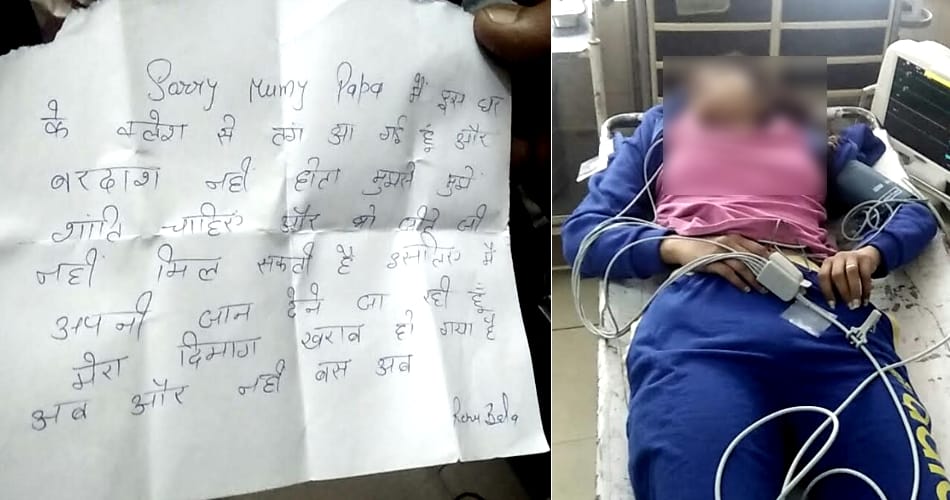 Sorry Mumy Papa मैं इस घर
के क्लेश से तंग आ गई हूं और
बरदाश नहीं होता मुझसे मुझे
शांति चाहिए और वो जीते जी
नहीं मिल सकती है इसलिए मैं
अपनी जान देने जा रही हूँ
मेरा दिमाग खराब हो गया है
अब और नही बस अब